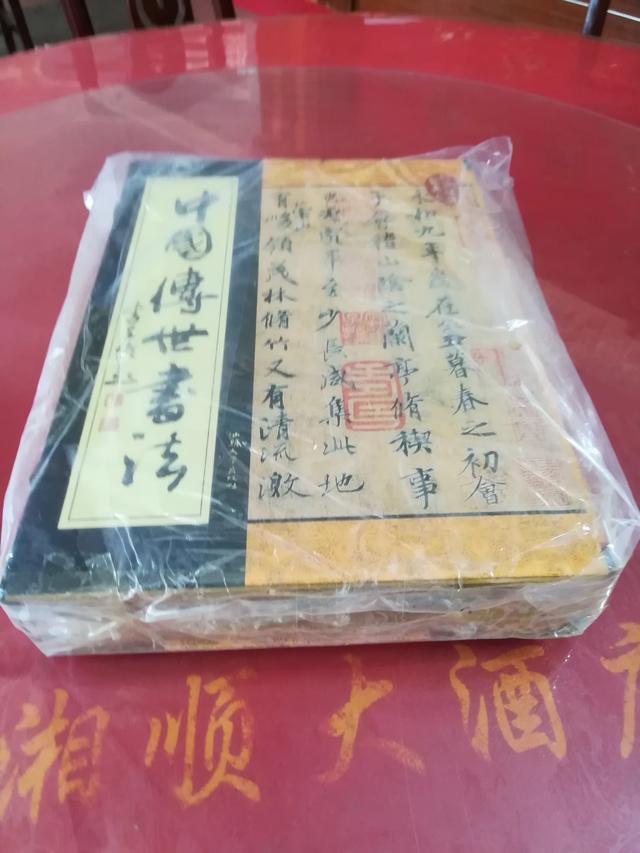 中國傳世書法
永和九年歲在癸丑暮春之初會
于會稽山陰之蘭亭脩禊事
也羣賢畢至少長咸集此地
有崇山
峻領茂林脩竹又有清流激
湘順大酒